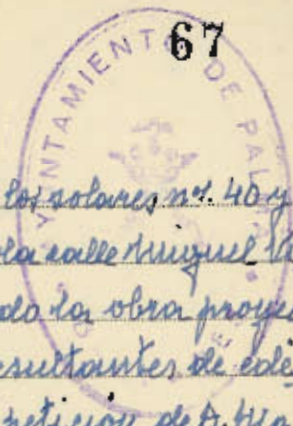 67
AYUNTAMIENTO DE PALMA
los solares nº. 40 y
la calle Miguel
do la obra proyec
resultantes de edi
petición de A.